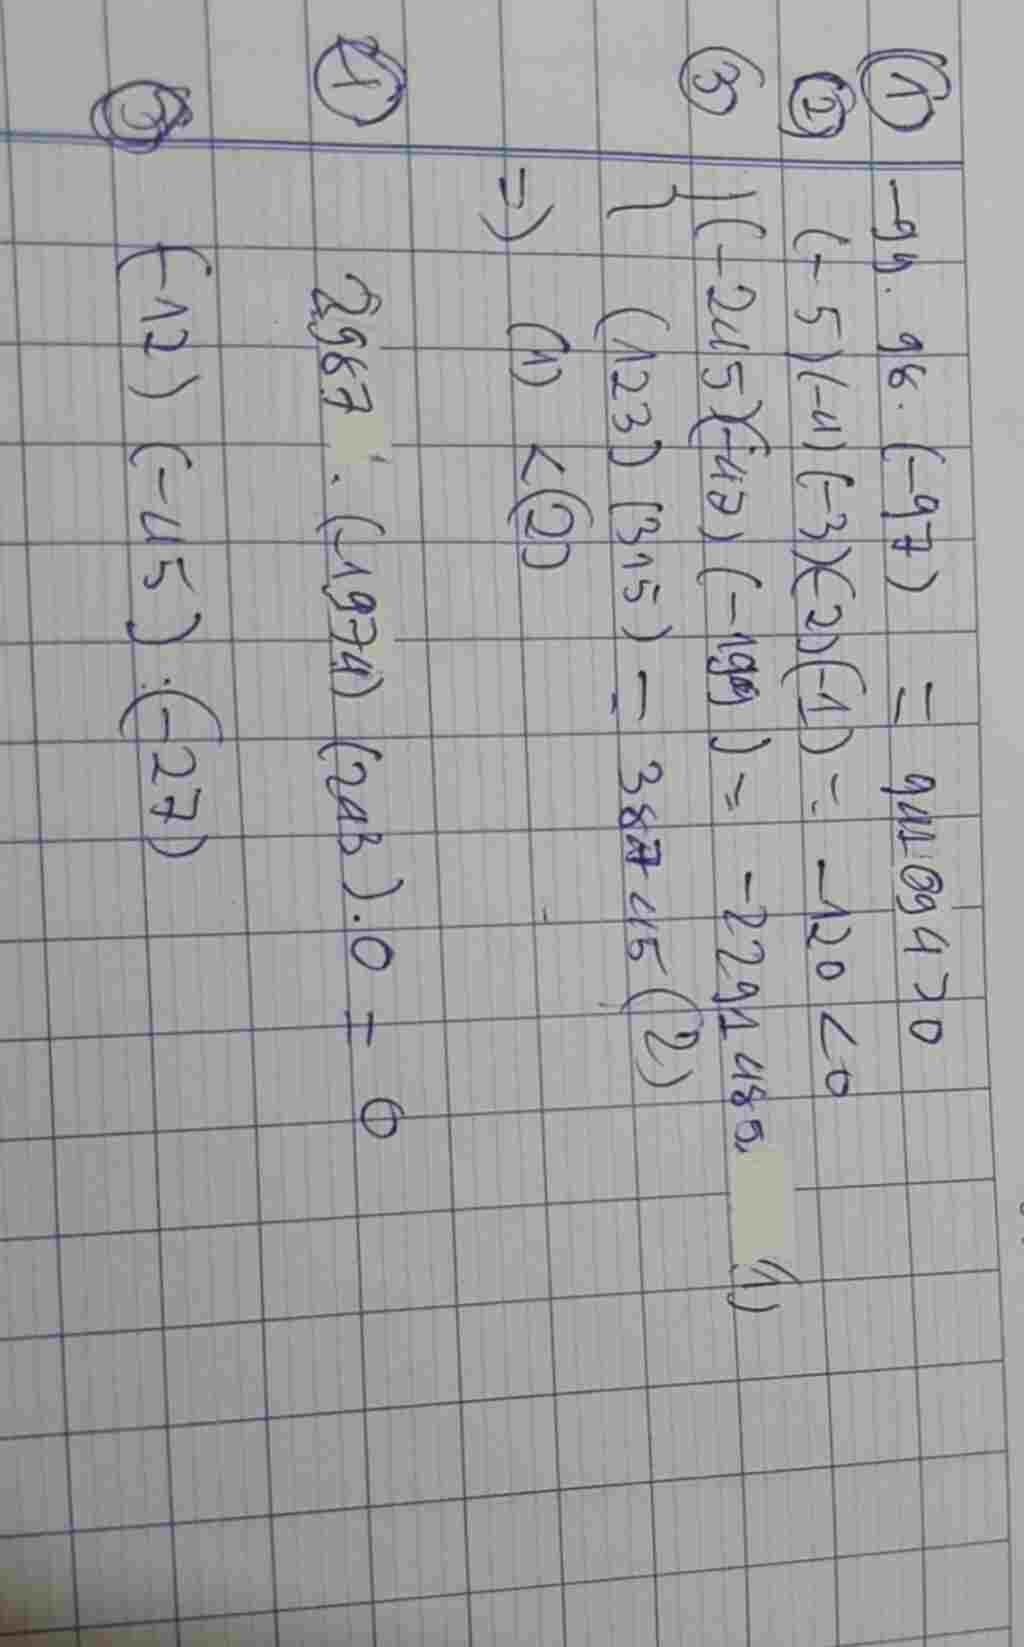 ① -99. 98. (-97) = 941 094 > 0
② (-5)(-4)(-3)(-2)(-1) = -120 < 0
③ (-245)(-47)(-199) = -2291485 (1)
(123) (315) = 38745 (2)
=) (1) < (2)
2987 . (1974) (243).0 = 0
(-12) (-45) . (-27)